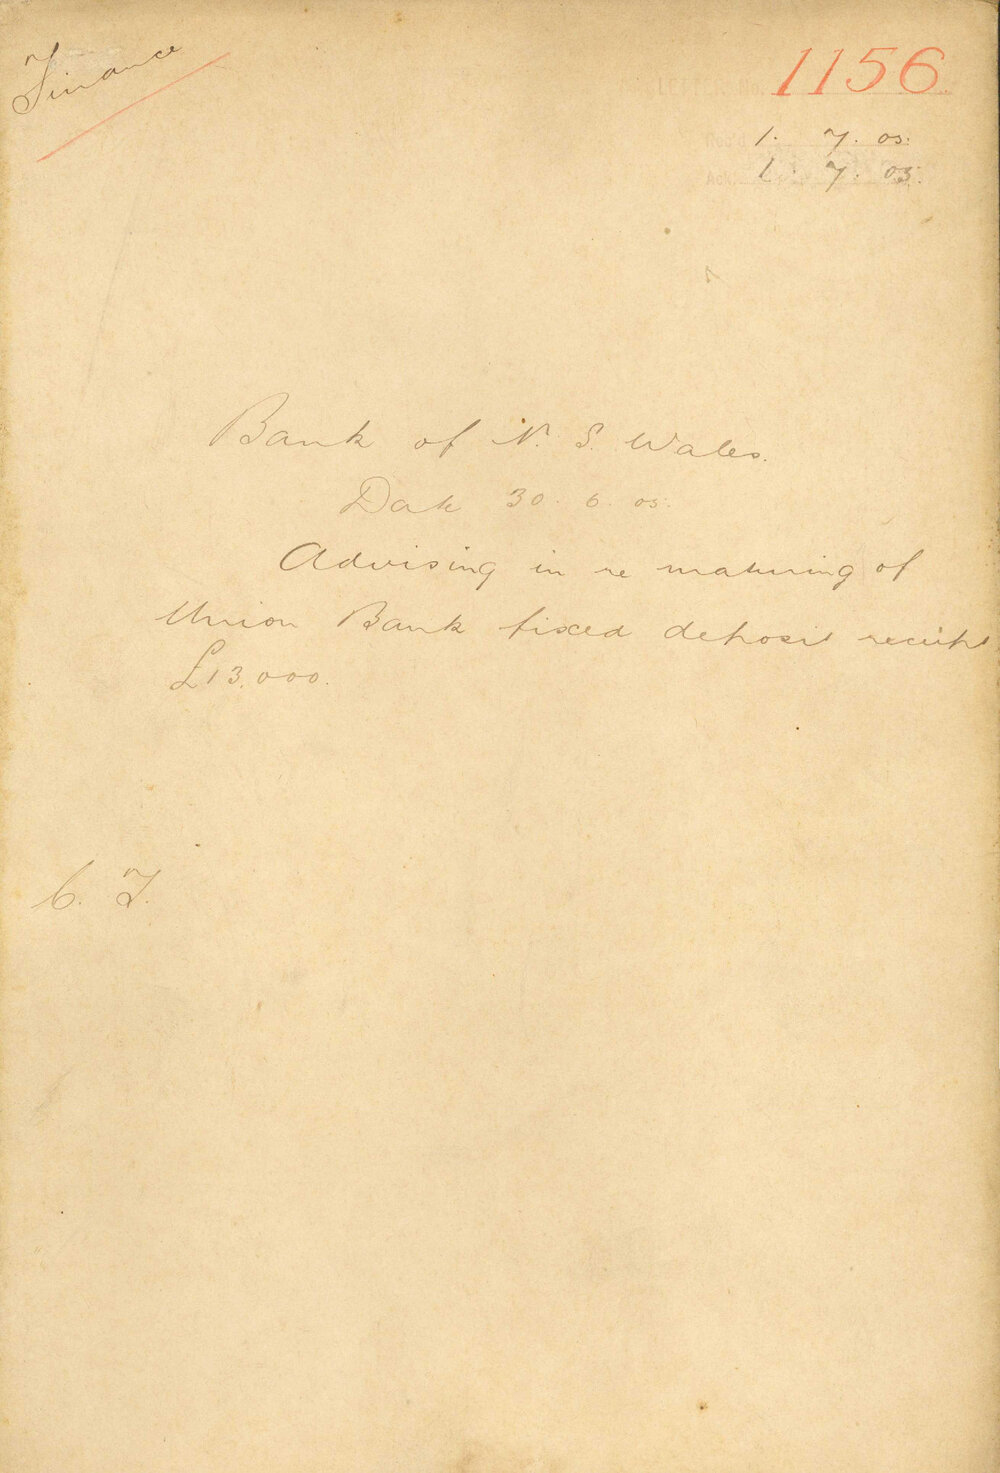 Finance
LETTER No. 1156
Rec'd 1. 7. 05.
Ack. 1. 7. 05.
Bank of N. S. Wales.
Date 30. 6. 05.
Advising in re maturing of
Union Bank fixed deposit receipt
£13,000.
C. T.